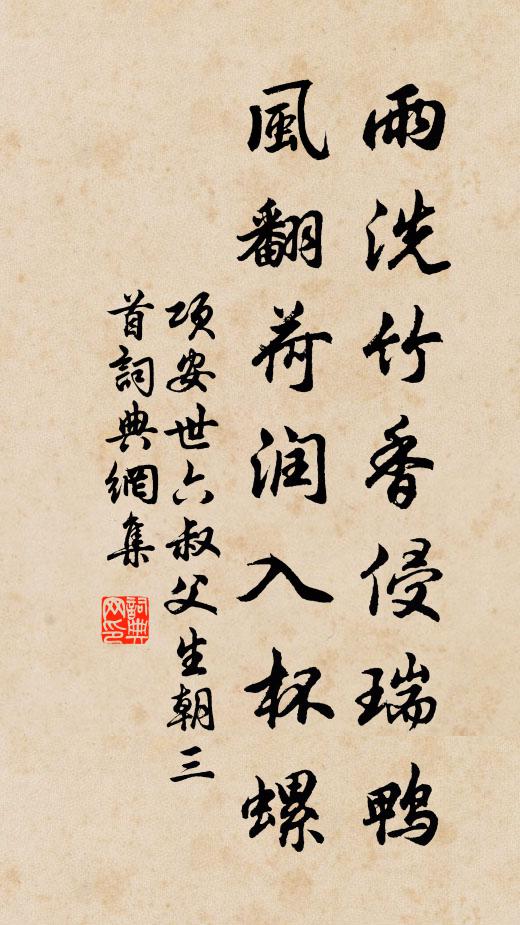 雨洗竹香侵瑞鴨
風翻荷润入杯螺
项安世六叔父生朝三
首詞典網集
詞典网印